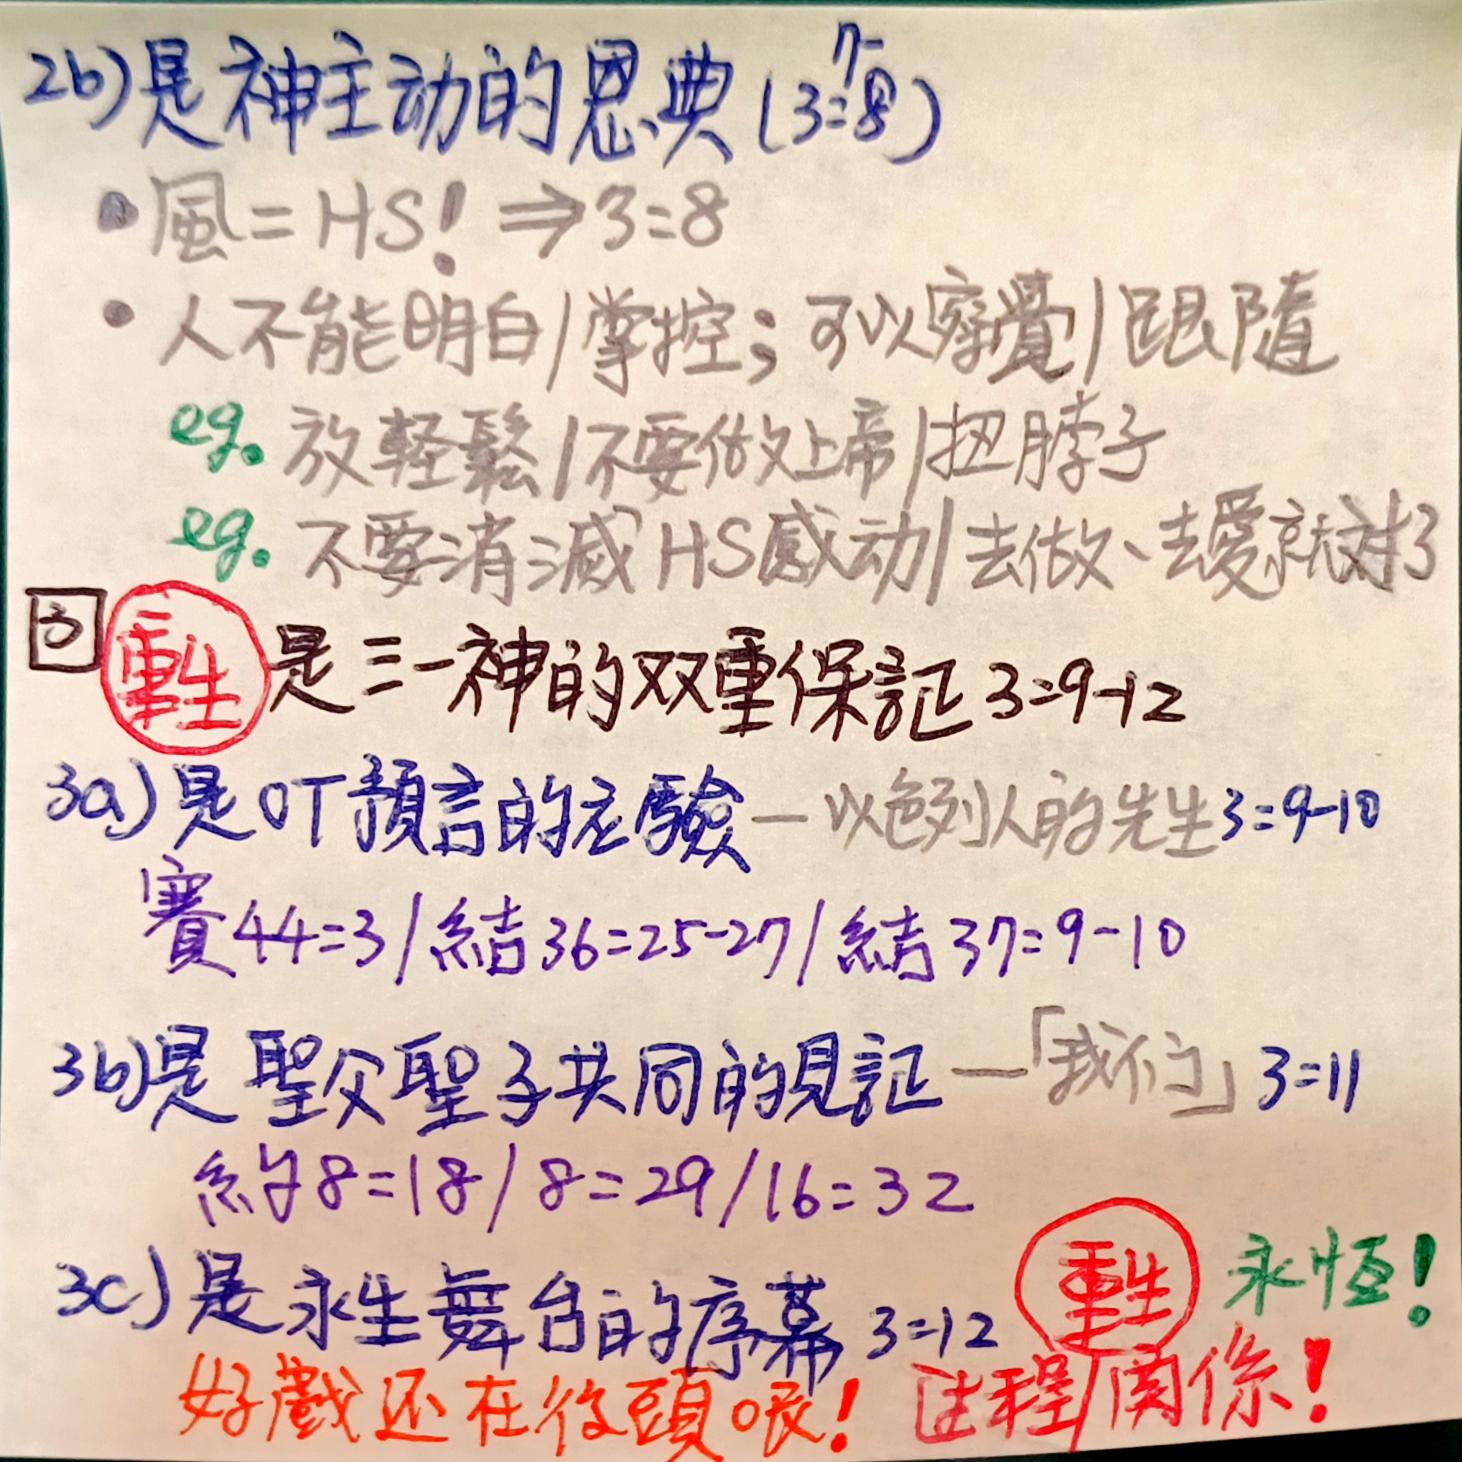 2b)是神主动的恩典(3:7-8)
•風=HS! ⇒3:8
•人不能明白/掌控;可以察覺/跟隨
eg.放輕鬆/不要做上帝/扭脖子
eg.不要消滅HS感动/去做、去愛就对了
3 重生是三一神的双重保証3:9-12
3a)是OT預言的应驗—以色列人的先生3:9-10
賽44:3/結36:25-27/結37:9-10
3b)是聖父聖子共同的見証—「我们」3:11
約8:18/8:29/16:32
3c)是永生舞台的序幕3:12 重生 永恆!
好戲还在後頭哦! 过程/関係!